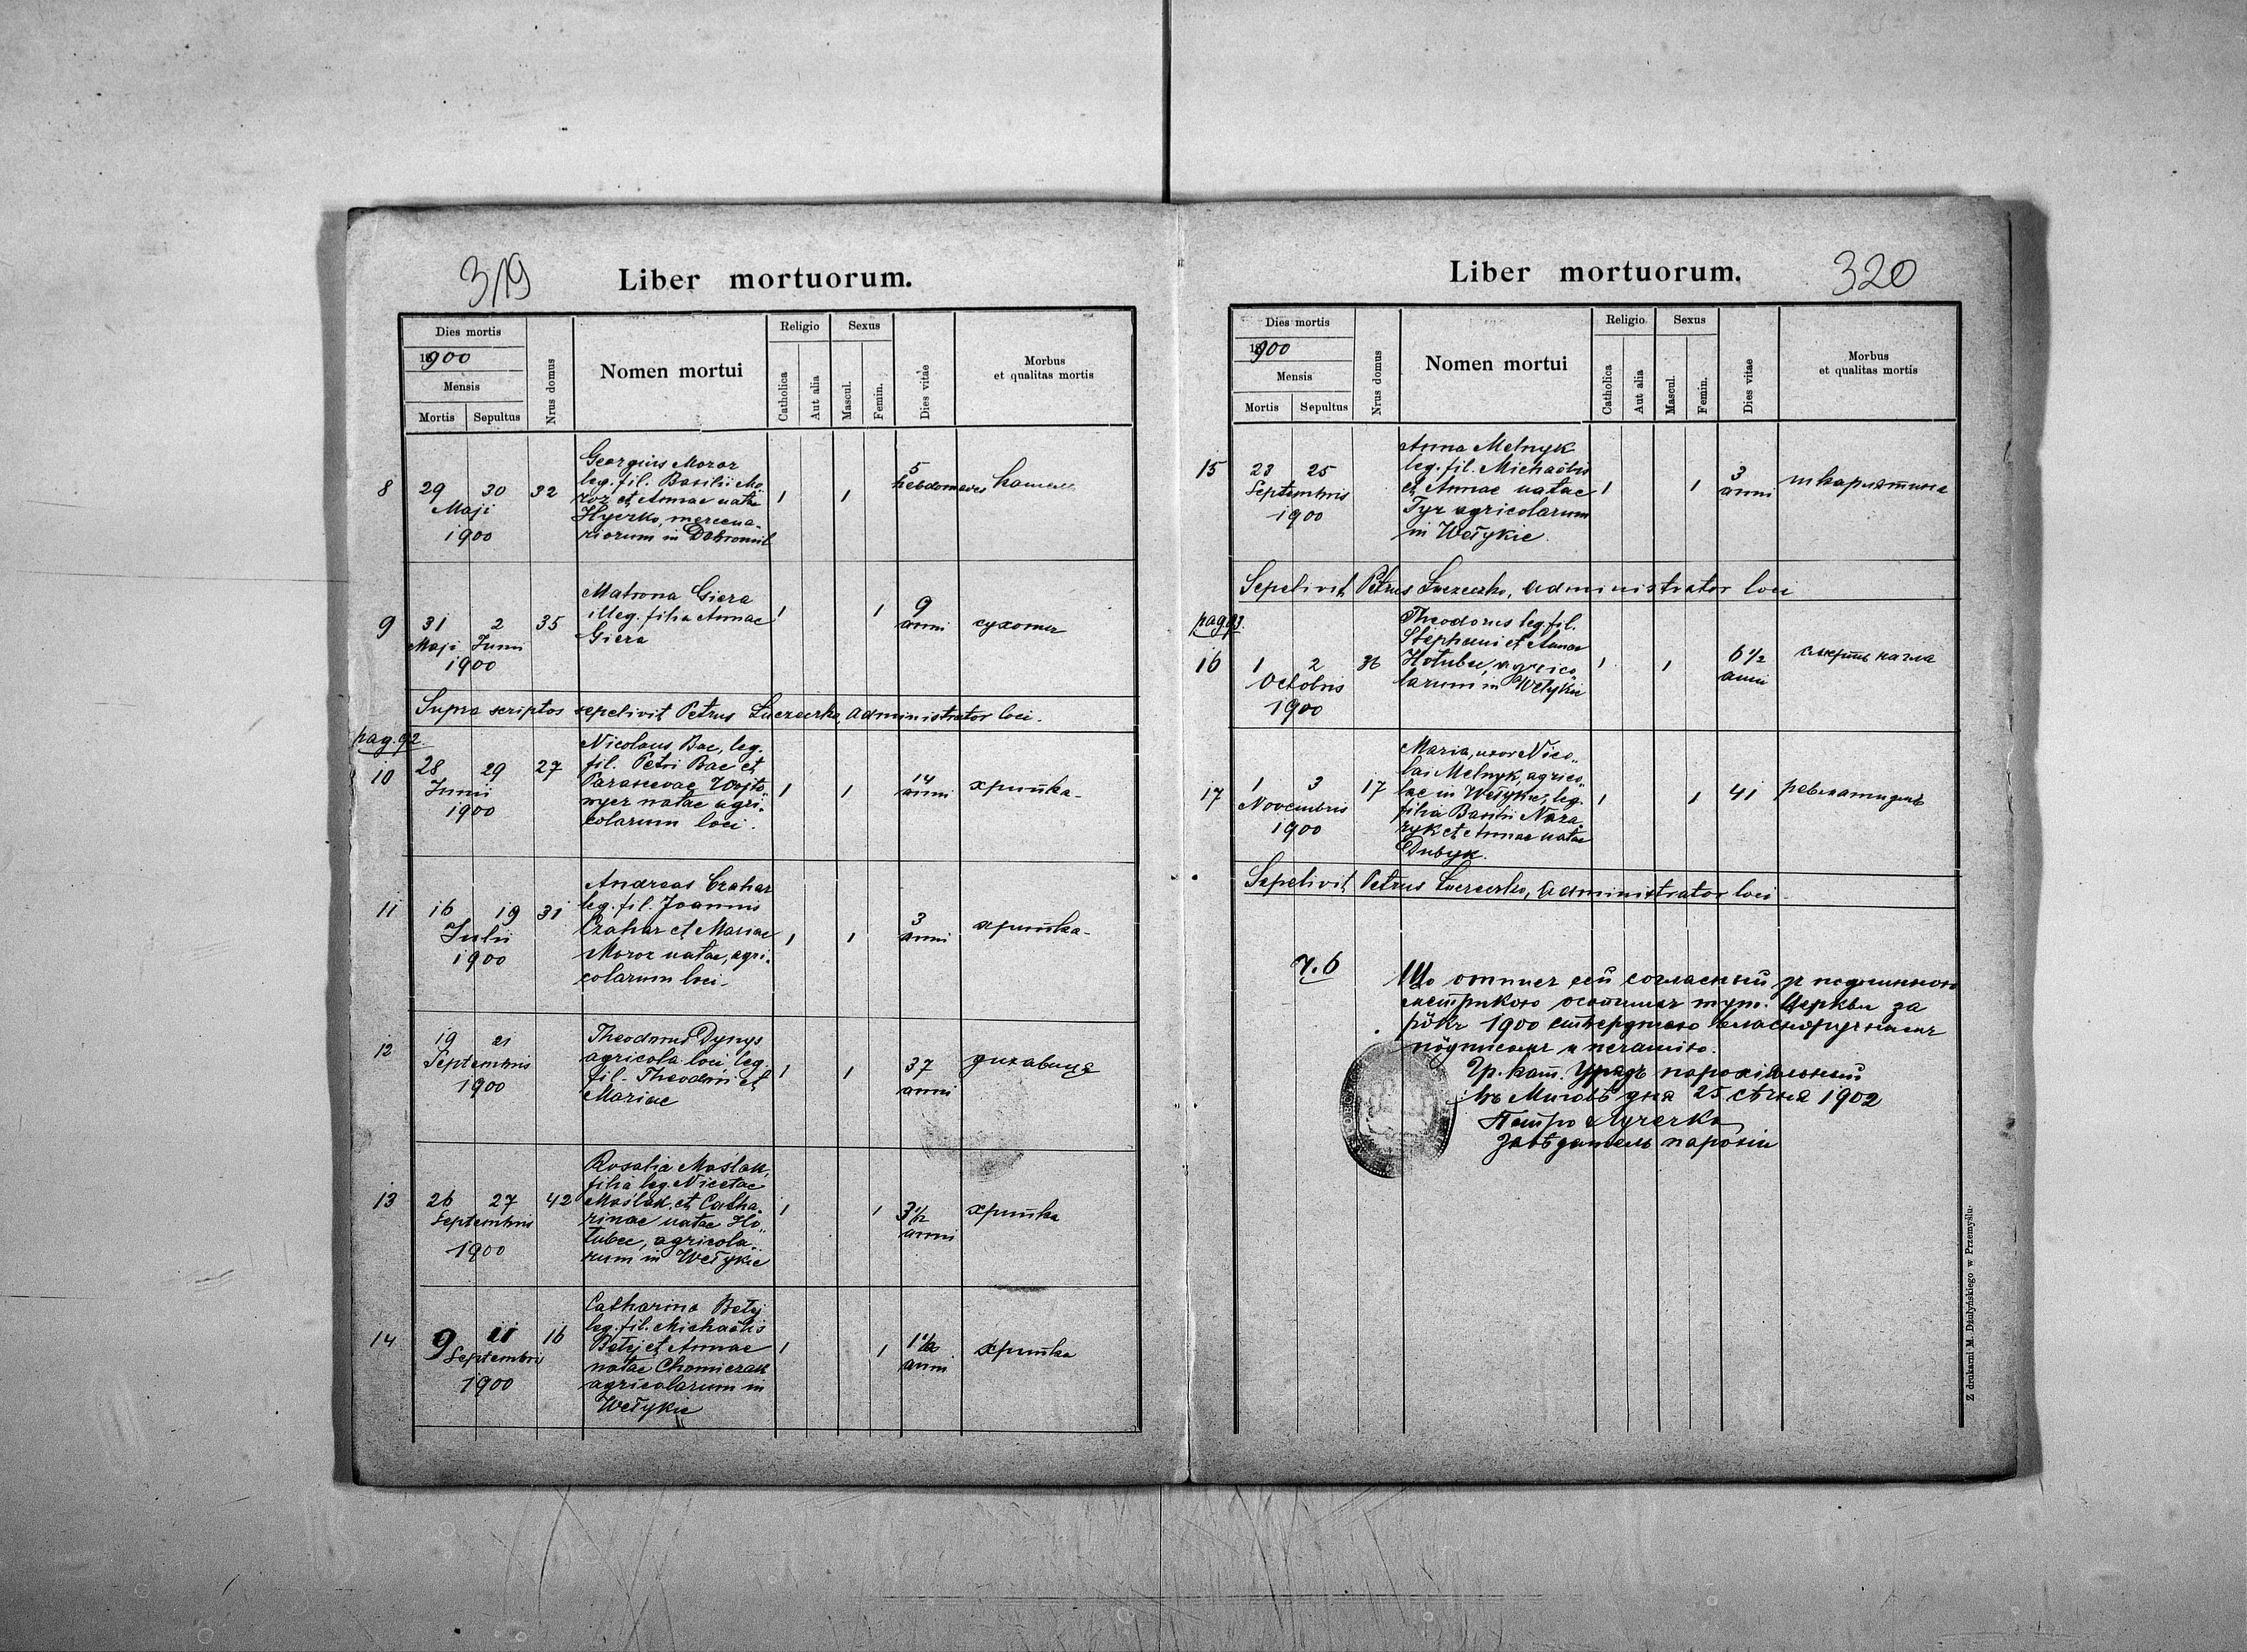 319
Liber mortuorum.
Dies mortis
1900
Mensis
Mortis Sepultus
Nrus domus
Nomen mortui
Religio
Catholica
Aut alia
Sexus
Mascul.
Femin.
Dies vitae
Morbus
et qualitas mortis
8
29 30
Maji
1900
32
Georgius Moroz
leg. fil. Basilii Mo„
roz et Annae natae
Hyczko, mercena„
riorum in Dobromil
1
1
5
hebdomades
кашель
9
31 2
Maji Junii
1900
35
Matrona Giera
illeg. filia Annae
Giera
1
1
9
anni
сухоты
Supra scriptos sepelivit Petrus Łuczeczko, administrator loci.
pag. 92
10
28 29
Junii
1900
27
Nicolaus Bac, leg.
fil. Petri Bac et
Parascevae Wojto„
wycz natae agri„
colarum loci.
1
1
14
anni
хрипка
11
16 19
Julii
1900
31
Andreas Czahar
leg. fil. Joannis
Czahar et Mariae
Moroz natae, agri„
colarum loci.
1
1
3
anni
хрипка
12
19 21
Septembris
1900
Theodorus Dynys
agricola loci, leg.
fil. Theodori et
Mariae
1
1
37
anni
дихавиця
13
26 27
Septembris
1900
42
Rosalia Maślak,
filia leg. Nicetae
Maślak et Catha„
rinae natae Ho„
łubec, agricola„
rum in Wełykie
1
1
3½
anni
хрипка
14
9 11
Septembris
1900
16
Catharina Bety
leg. fil. Michaëlis
Betyj et Annae
natae Chomiczak
agricolarum in
Wełykie
1
1
1½
anni
хрипка
Liber mortuorum.
320
Dies mortis
1900
Mensis
Mortis Sepultus
Nrus domus
Nomen mortui
Religio
Catholica
Aut alia
Sexus
Mascul.
Femin.
Dies vitae
Morbus
et qualitas mortis
15
23 25
Septembris
1900
Anna Melnyk
leg. fil. Michaëlis
et Annae natae
Tyz agricolarum
in Wełykie.
1
1
3
anni
шкарлятина
Sepelivit Petrus Łuczeczko, administrator loci
pag. 93.
16
1 2
Octobris
1900
36
Theodorus leg. fil.
Stephani et Annae
Hołubec, agrico„
larum in Wełykie
1
1
6½
anni
смерть нагла
17
1 3
Novembris
1900
17
Maria, uxor Nico„
lai Melnyk, agrico„
lae in Wełykie, leg.
filia Basilii Naza„
ryk et Annae natae
Dubyk.
1
1
41
Sepelivit Petrus Łuczeczko, administrator loci.
Що отпис сей согласный з подлинною
метрикою тут. Церкви за
рôкъ 1900 ствердшаю власноручным
пôдписомъ и печатію.
Гр. кат. Урядъ парохіяльный
въ дня 25 сѣчня 1902
Петро Лучечко
завѣдатель парохіи
Z drukarni M. Dżułyńskiego w Przemyślu.